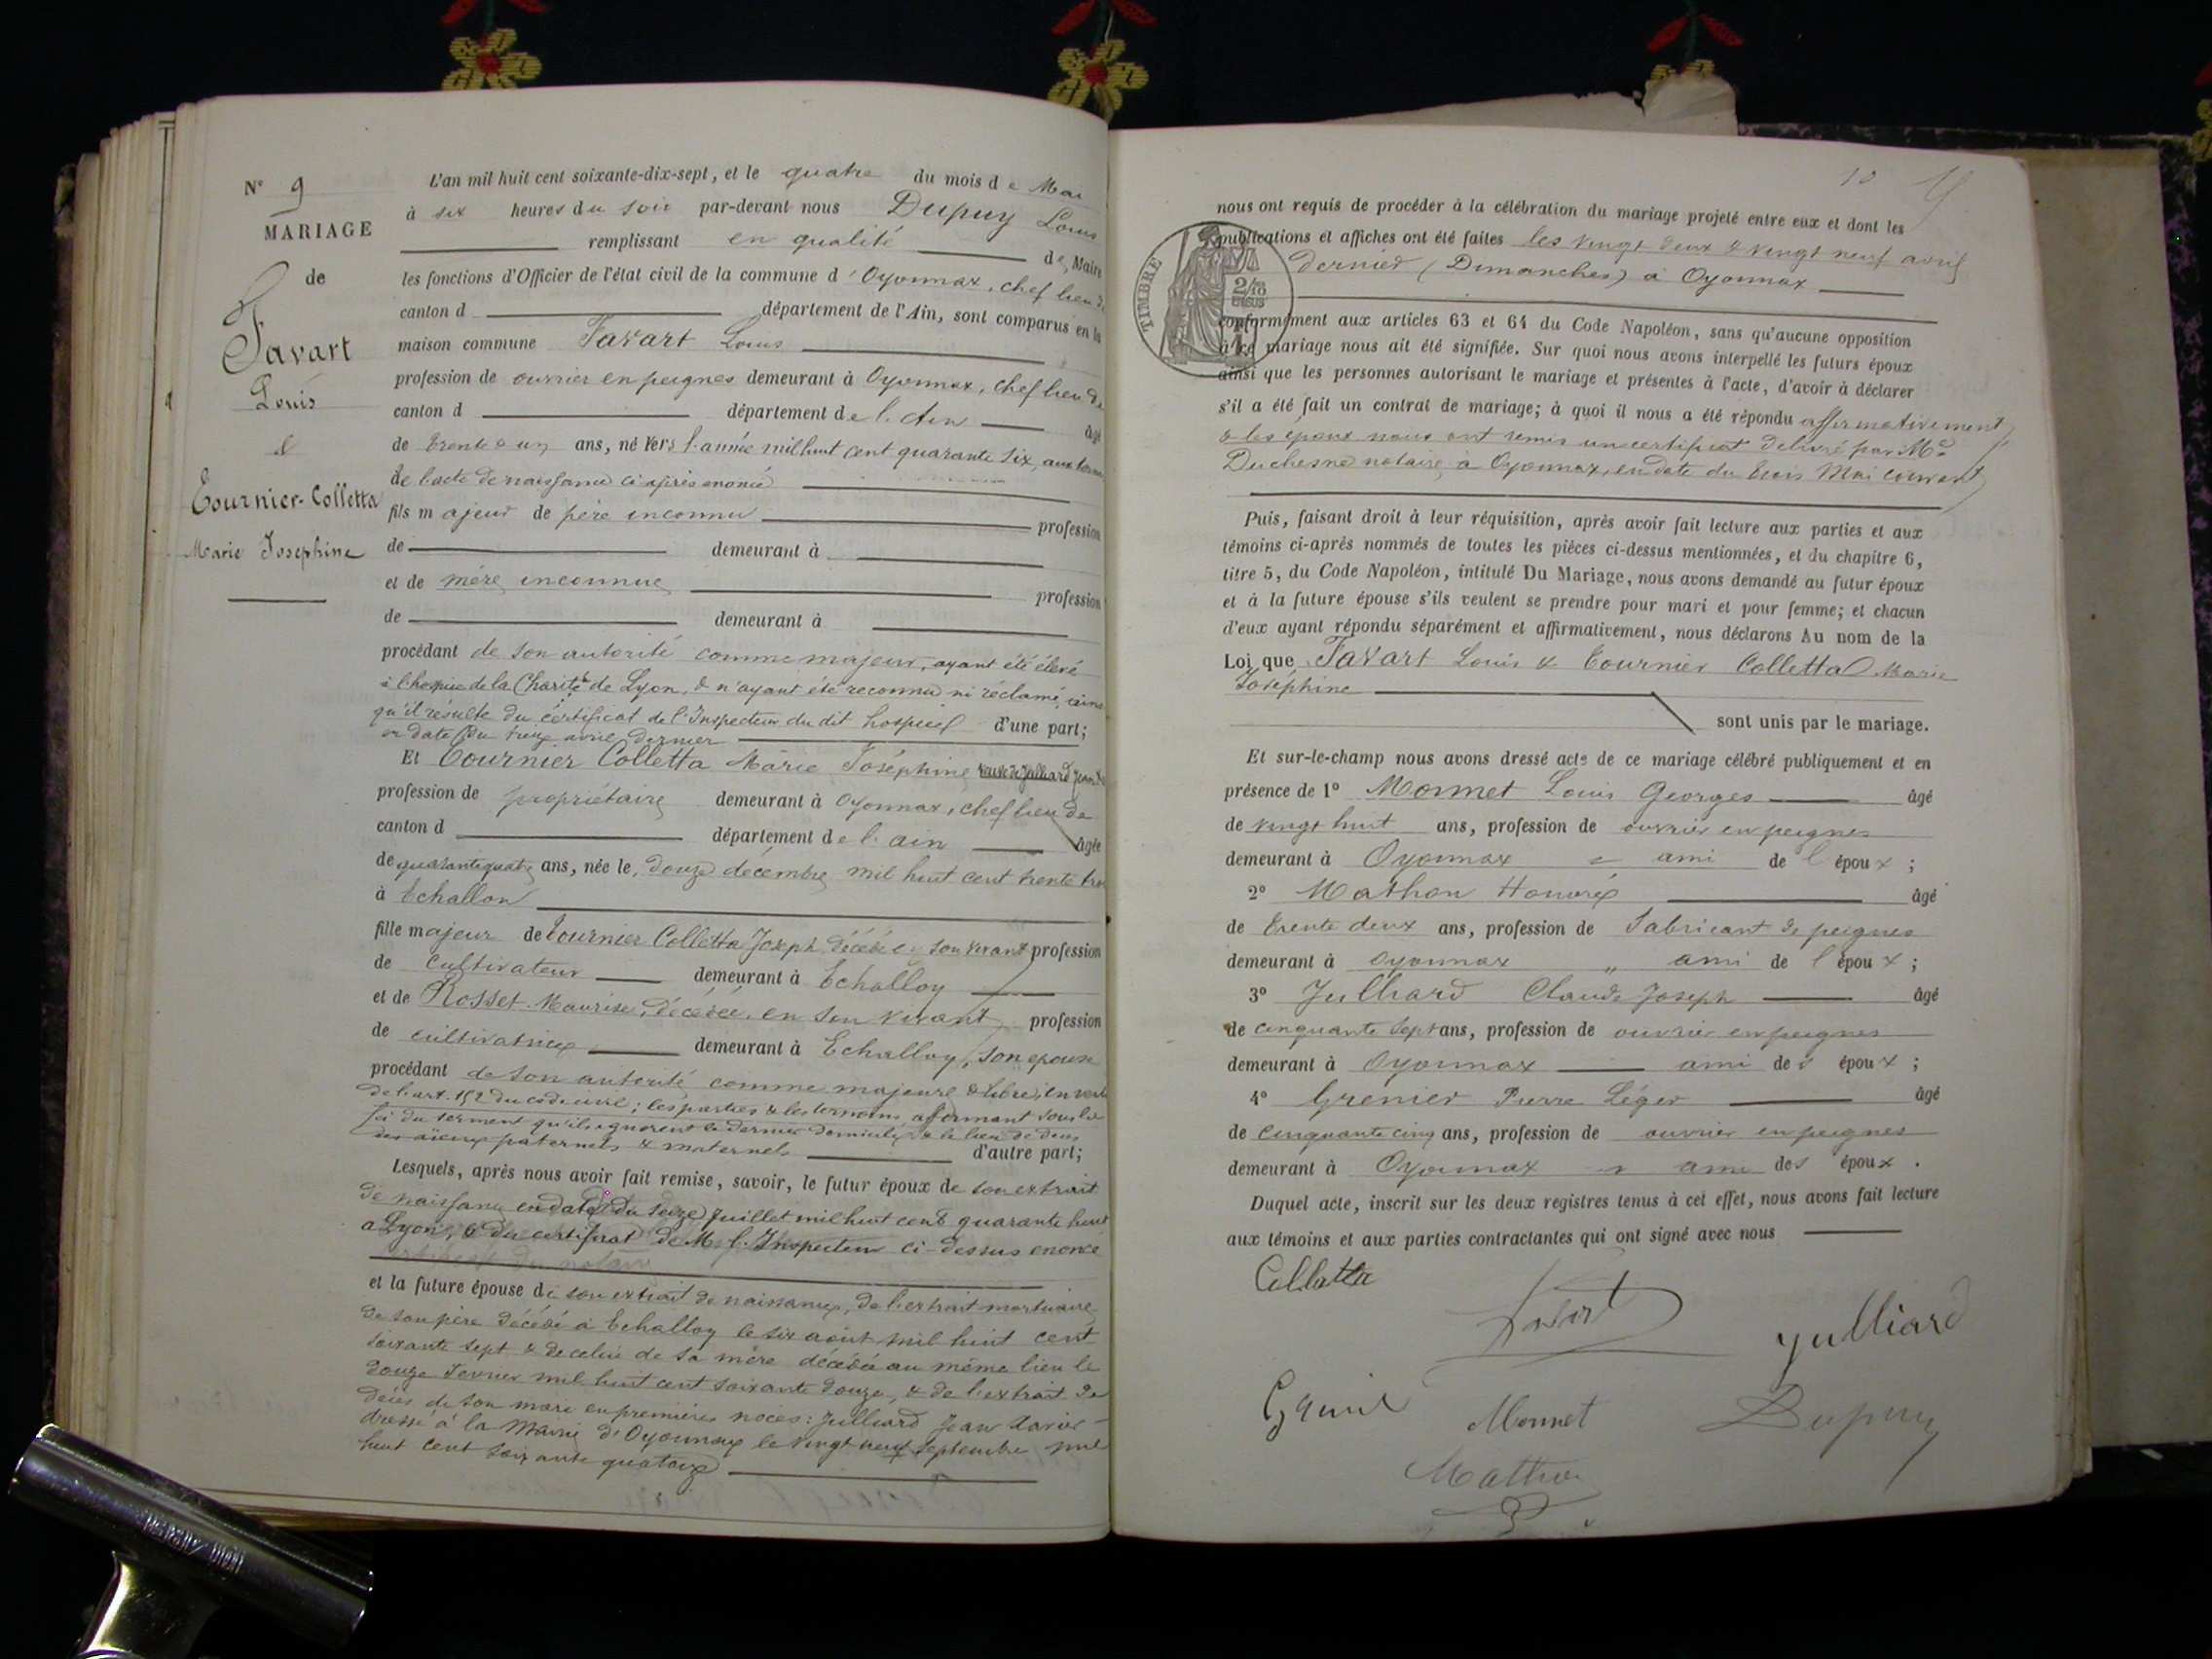 N° 9
MARIAGE
de
Favart
Louis
&
Tournier-Colletta
Marie Joséphine
L'an mil huit cent soixante-dix-sept, et le quatre du mois de Mai
à six heures du soir par-devant nous Dupuy Louis
remplissant en qualité de Maire
les fonctions d'Officier de l'état civil de la commune d'Oyonnax, chef lieu de
canton d département de l'Ain, sont comparus en la
maison commune Favart Louis
profession de ouvrier en peignes demeurant à Oyonnax, chef lieu de
canton d département de l'Ain âgé
de trente & un ans, né vers l'année mil huit cent quarante six, aux termes
de l'acte de naissance ci après énoncé
fils majeur de père inconnu profession
de demeurant à
et de mère inconnue profession
de demeurant à
procédant de son autorité comme majeur, ayant été élevé
à l'hospice de la Charité de Lyon, & n'ayant été reconnu ni réclamé, ainsi
qu'il résulte du certificat de l'Inspecteur du dit hospice d'une part;
en date du avril dernier
Et Tournier Colletta Marie Joséphine veuve de Julliard Jean
profession de propriétaire demeurant à Oyonnax, chef lieu de
canton d département de l'ain âgée
de quarante quatre ans, née le douze décembre mil huit cent trente trois
à Echallon
fille majeur de Tournier Colletta Joseph décédé en son vivant profession
de cultivateur demeurant à Echallon
et de Rosset Maurise, décédée, en son vivant, profession
de cultivatrice demeurant à Echallon, son épouse
procédant de son autorité comme majeure & libre, en vertu
de l'art. 152 du code civil; les parties & les témoins affirmant sous la
foi du serment qu'ils ignorent le dernier domicile & le lieu de décès
des aïeux paternels & maternels d'autre part;
Lesquels, après nous avoir fait remise, savoir, le futur époux de son extrait
de naissance en date du seize Juillet mil huit cent quarante huit
a Lyon, & du certificat de M. l'Inspecteur ci-dessus énoncé
et la future épouse de son extrait de naissance, de l'extrait mortuaire
de son père décédé à Echallon le six août mil huit cent
soixante sept & de celui de sa mère décédée au même lieu le
douze Fevrier mil huit cent soixante douze, & de l'extrait de
décès de son mari en premières noces: Julliard Jean
dressé à la Mairie d'Oyonnax le vingt neuf Septembre mil
huit cent soixante quatorze
10
nous ont requis de procéder à la célébration du mariage projeté entre eux et dont les
publications et affiches ont été faites les vingt deux & vingt neuf avril
dernier (Dimanches) à Oyonnax
TIMBRE
conformément aux articles 63 et 64 du Code Napoléon, sans qu'aucune opposition
à ce mariage nous ait été signifiée. Sur quoi nous avons interpellé les futurs époux
ainsi que les personnes autorisant le mariage et présentes à l'acte, d'avoir à déclarer
s'il a été fait un contrat de mariage; à quoi il nous a été répondu affirmativement,
& les époux nous ont remis un certificat délivré par Me
Duchesne notaire à Oyonnax, en date du trois Mai courant
Puis, faisant droit à leur réquisition, après avoir fait lecture aux parties et aux
témoins ci-après nommés de toutes les pièces ci-dessus mentionnées, et du chapitre 6,
titre 5, du Code Napoléon, intitulé Du Mariage, nous avons demandé au futur époux
et à la future épouse s'ils veulent se prendre pour mari et pour femme; et chacun
d'eux ayant répondu séparément et affirmativement, nous déclarons Au nom de la
Loi que Favart Louis & Tournier Colletta Marie
Joséphine
sont unis par le mariage.
Et sur-le-champ nous avons dressé acte de ce mariage célébré publiquement et en
présence de 1° Monnet Louis Georges âgé
de vingt huit ans, profession de ouvrier en peignes
demeurant à Oyonnax ami de l'époux;
2° Mathon Honoré âgé
de trente deux ans, profession de Fabricant de peignes
demeurant à Oyonnax " ami de l'époux;
3° Julliard Claude Joseph âgé
de cinquante sept ans, profession de ouvrier en peignes
demeurant à Oyonnax ami des époux;
4° Grenier Pierre Léger âgé
de cinquante cinq ans, profession de ouvrier en peignes
demeurant à Oyonnax ami des époux.
Duquel acte, inscrit sur les deux registres tenus à cet effet, nous avons fait lecture
aux témoins et aux parties contractantes qui ont signé avec nous
Colletta
Favart
Julliard
Monnet
Dupuy
Mathon